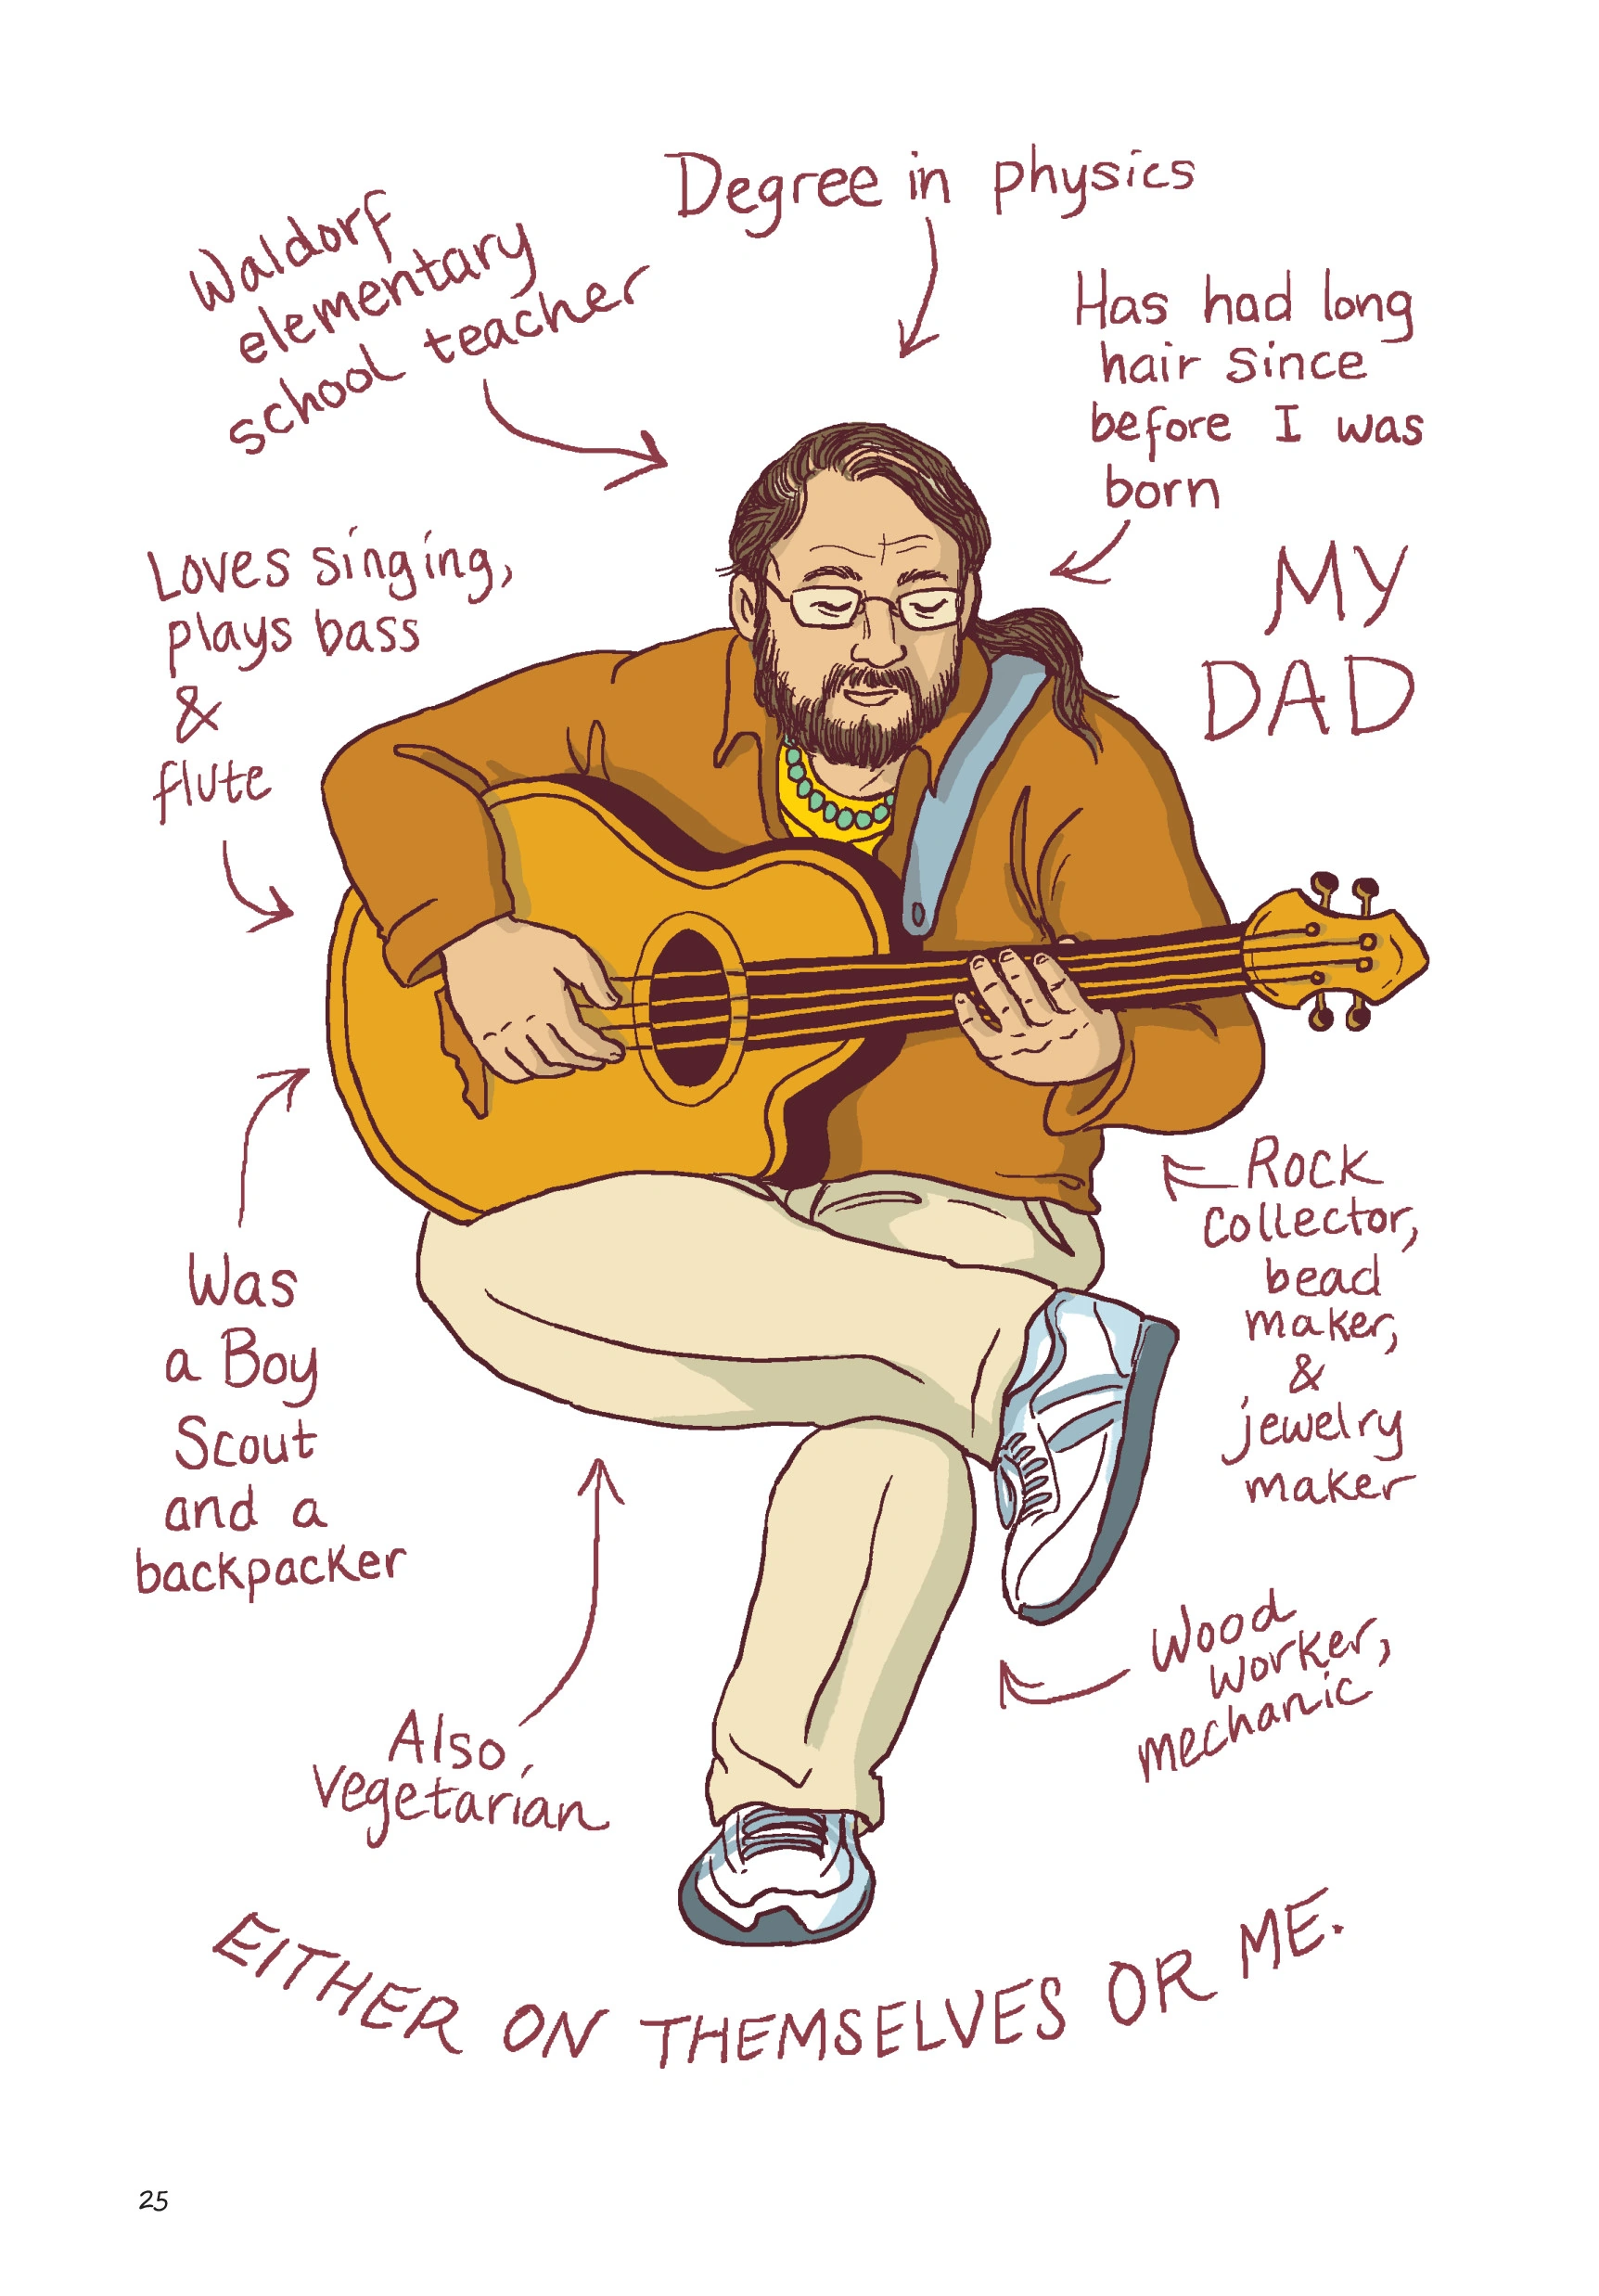 Degree in physics
Waldorf
elementary
school teacher
Has had long
hair since
before I was
born
Loves singing,
plays bass
&
flute
MY
DAD
Rock
collector,
bead
maker,
&
jewelry
maker
Was
a Boy
Scout
and a
backpacker
Wood
worker,
mechanic
Also,
vegetarian
EITHER ON THEMSELVES OR ME.
25